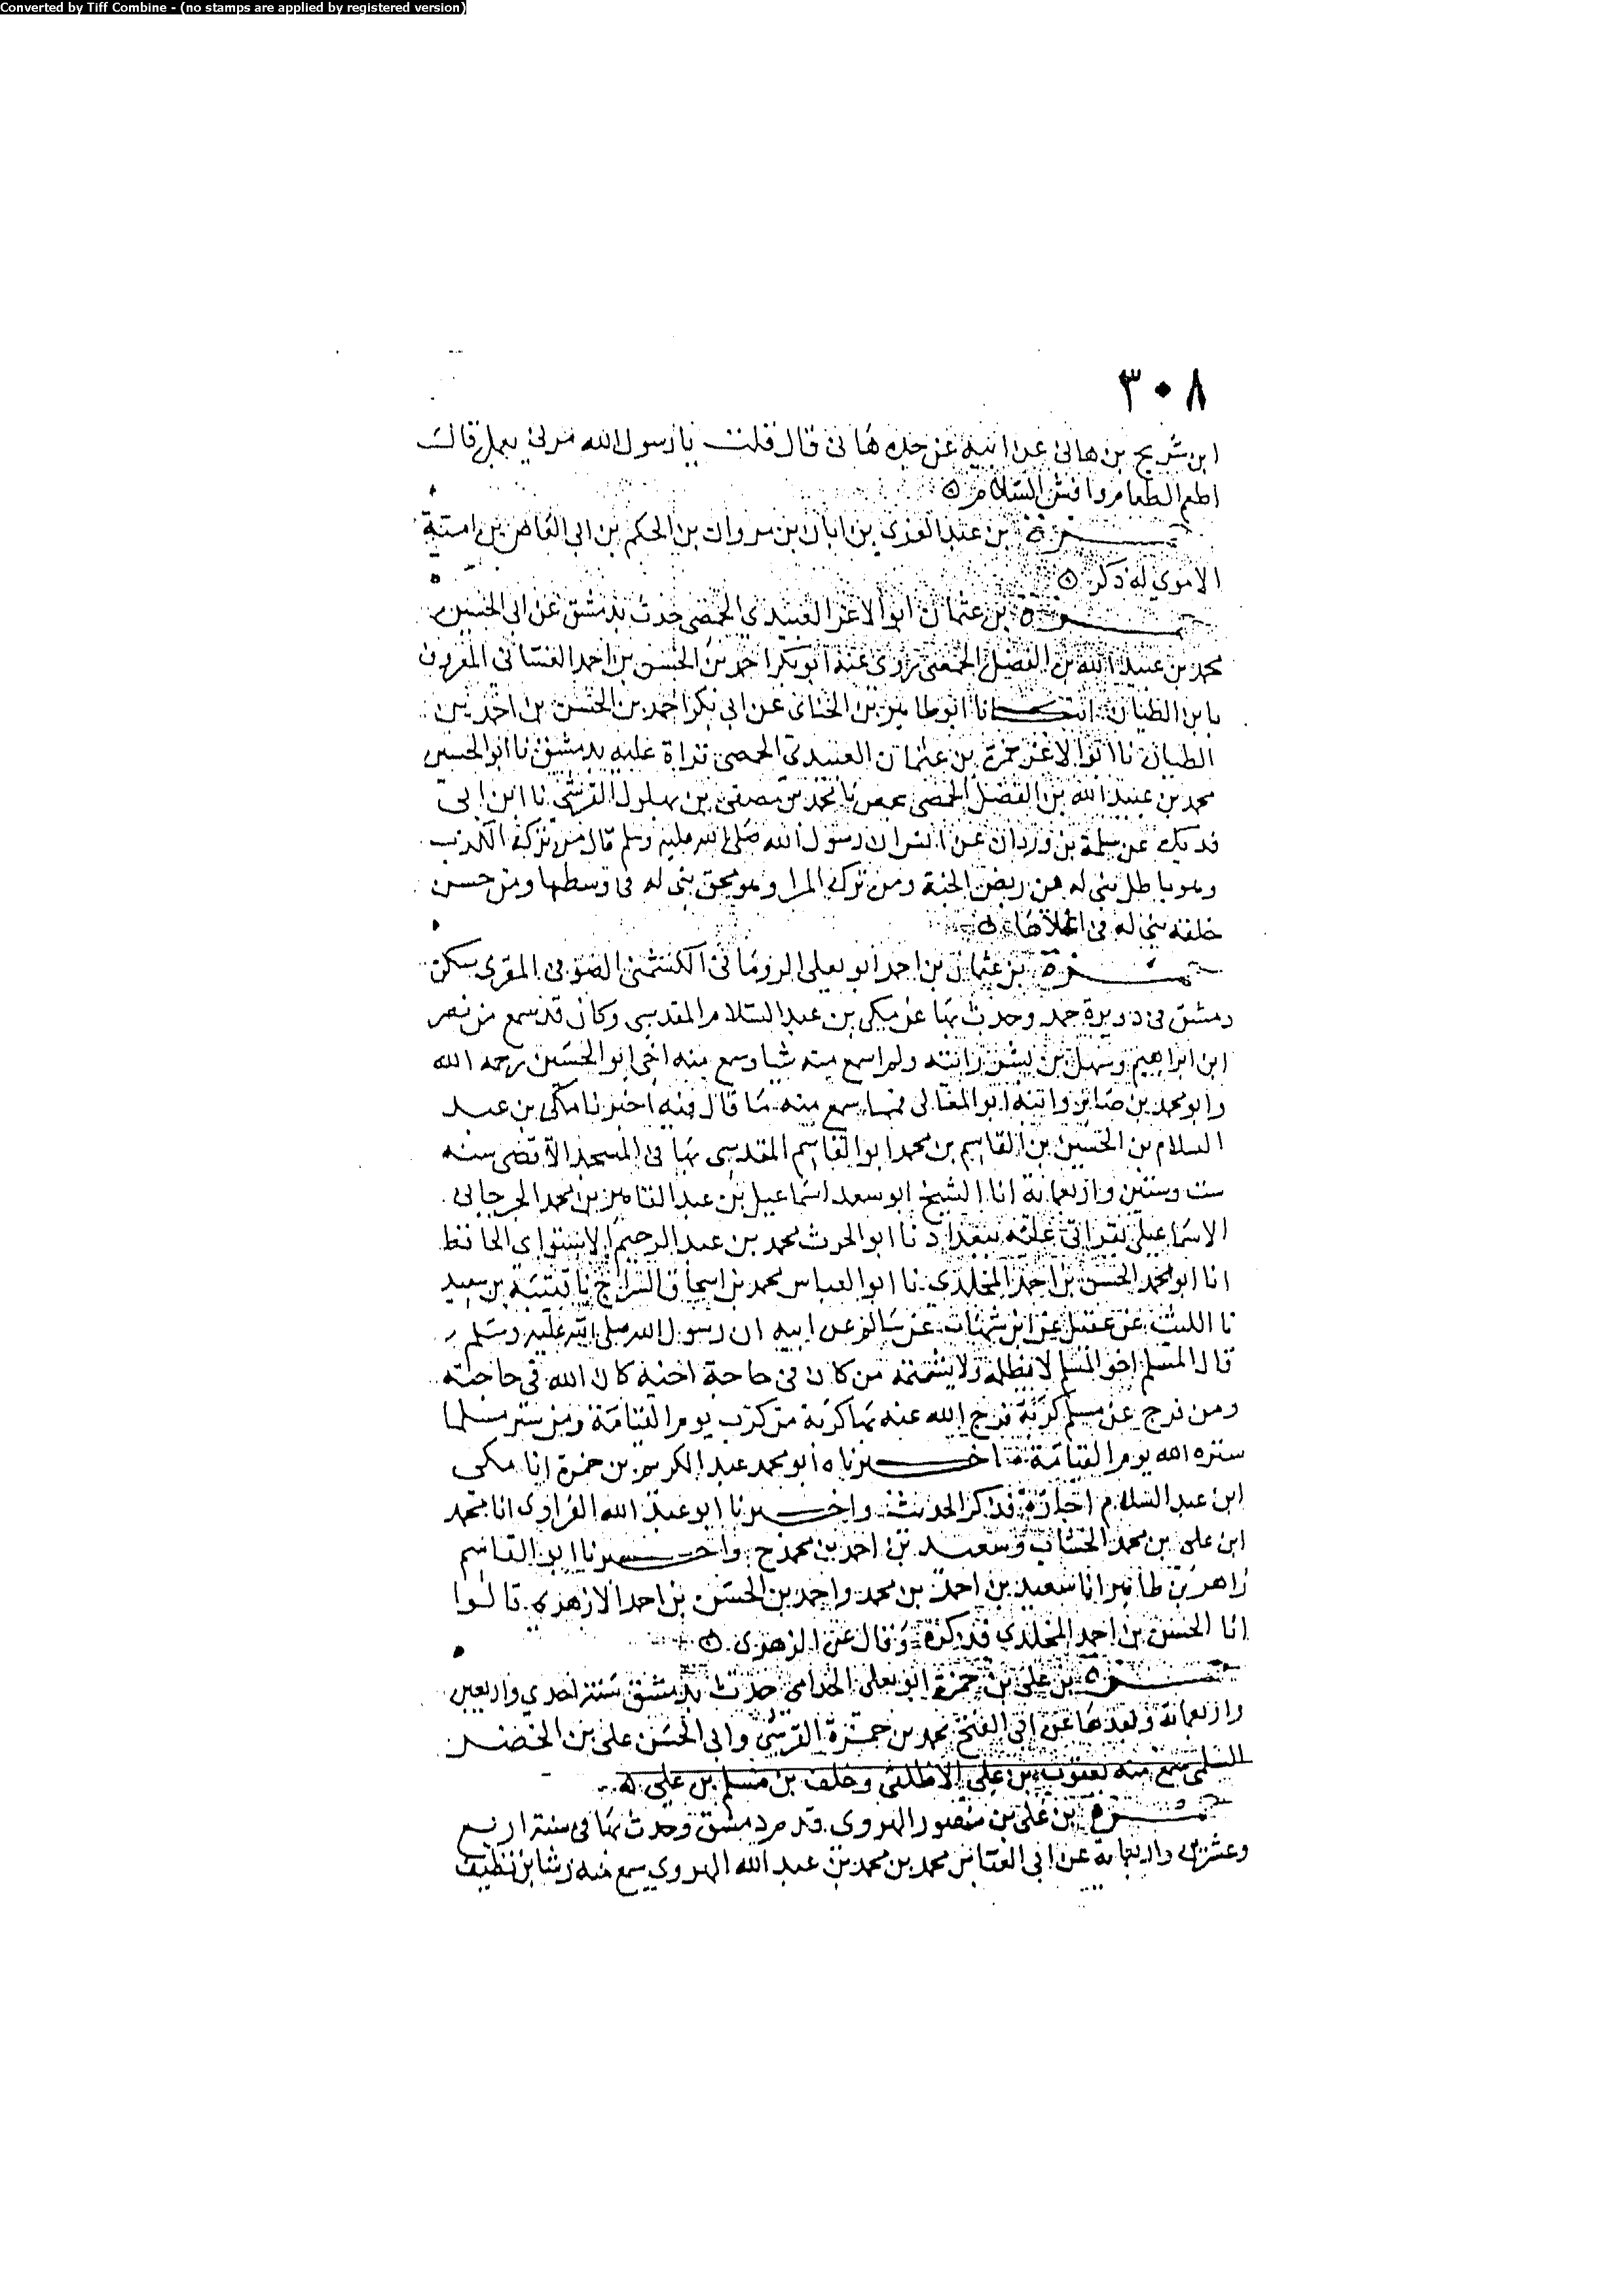 Converted by Tiff Combine - (no stamps are applied by registered version)
٣٠٨
ابن شريح بن هانى عن ابيه عن جده هانى قال قلت يا رسول الله مرنى بعمل قال
اطعم الطعام وافش السلام ه
حمزة بن عبد العزيز بن ابان بن مروان بن الحكم بن ابى العاص بن امية
الاموي له ذكر ه
حمزة بن عثمان ابو الاغر العبيدى الحمصى حدث بدمشق عن ابى الحسين
محمد بن عبيد الله بن الفضل الحمصى روى عنه ابو بكر احمد بن الحسن بن احمد الغسانى المعروف
بابن الطيان انبانا ابو طاهر بن الحنائى عن ابى بكر احمد بن الحسن بن احمد بن
الطيان نا ابو الاغر حمزة بن عثمان العبيدى الحمصى قراة عليه بدمشق نا ابو الحسين
محمد بن عبيد الله بن الفضل الحمصى بحمص نا محمد بن مصفى بن بهلول القرشى نا ابن ابى
فديك عن سلمة بن وردان عن انس ان رسول الله صلى الله عليه وسلم قال من ترك الكذب
وهو باطل بنى له من ربض الجنة ومن ترك المرا وهو محق بنى له فى وسطها ومن حسن
خلقه بنى له فى اعلاها ه
حمزة بن عثمان بن احمد ابو يعلى الرومانى الكشمنى الصوفى المقرى سكن
دمشق فى دويرة حمد وحدث بها عن مكى بن عبد السلام المقدسى وكان قد سمع من نصر
ابن ابراهيم وسهل بن بشر رايته ولم اسمع منه شيا وسمع منه اخى ابو الحسين رحمه الله
وابو محمد بن صابر وابنه ابو المعالى فمما سمع منه ما قال فيه اخبرنا مكى بن عبد
السلام بن الحسين بن القاسم بن محمد ابو القاسم المقدسى بها فى المسجد الاقصى سنه
ست وستين واربعماية انا الشيخ ابو سعد اسماعيل بن عبد القاهر بن محمد الجرجانى
الاسماعيلى بقراتى عليه ببغداد نا ابو الحرث محمد بن عبد الرحيم الاستواى الحافظ
انا ابو محمد الحسن بن احمد المخلدى نا ابو العباس محمد بن اسحاق السراج نا قتيبة بن سعيد
نا الليث عن عقيل عن ابن شهاب عن سالم عن ابيه ان رسول الله صلى الله عليه وسلم
قال المسلم اخو المسلم لا يظلمه ولا يشتمه من كان فى حاجة اخيه كان الله فى حاجته
ومن فرج عن مسلم كربة فرج الله عنه بها كربة من كرب يوم القيامة ومن ستر مسلما
ستره الله يوم القيامة اخبرناه ابو محمد عبد الكريم بن حمزة انا مكى
ابن عبد السلام اجازة فذكر الحديث واخبرنا ابو عبد الله الفراوى انا محمد
ابن على بن محمد الخشاب وسعيد بن احمد بن محمد ح واخبرنا ابو القاسم
زاهر بن طاهر انا سعيد بن احمد بن محمد واحمد بن الحسن بن احمد الازهرى قالوا
انا الحسن بن احمد المخلدي فذكره وقال عن الزهرى ه
حمزة بن على بن حمزة ابو يعلى حدث بدمشق سنة احدي واربعين
واربعماية وبعدها عن ابى الفتح محمد بن حمزة القرشى وابى الحسن على بن الخضر
السلمى سمع منه يعقوب بن على وخلف بن مسلم بن على ه
حمزة بن على بن منصور الهروى قدم دمشق وحدث بها فى سنة اربع
وعشرين واربعماية عن ابى العباس محمد بن محمد بن عبد الله الهروي سمع منه رشا بن نظيف